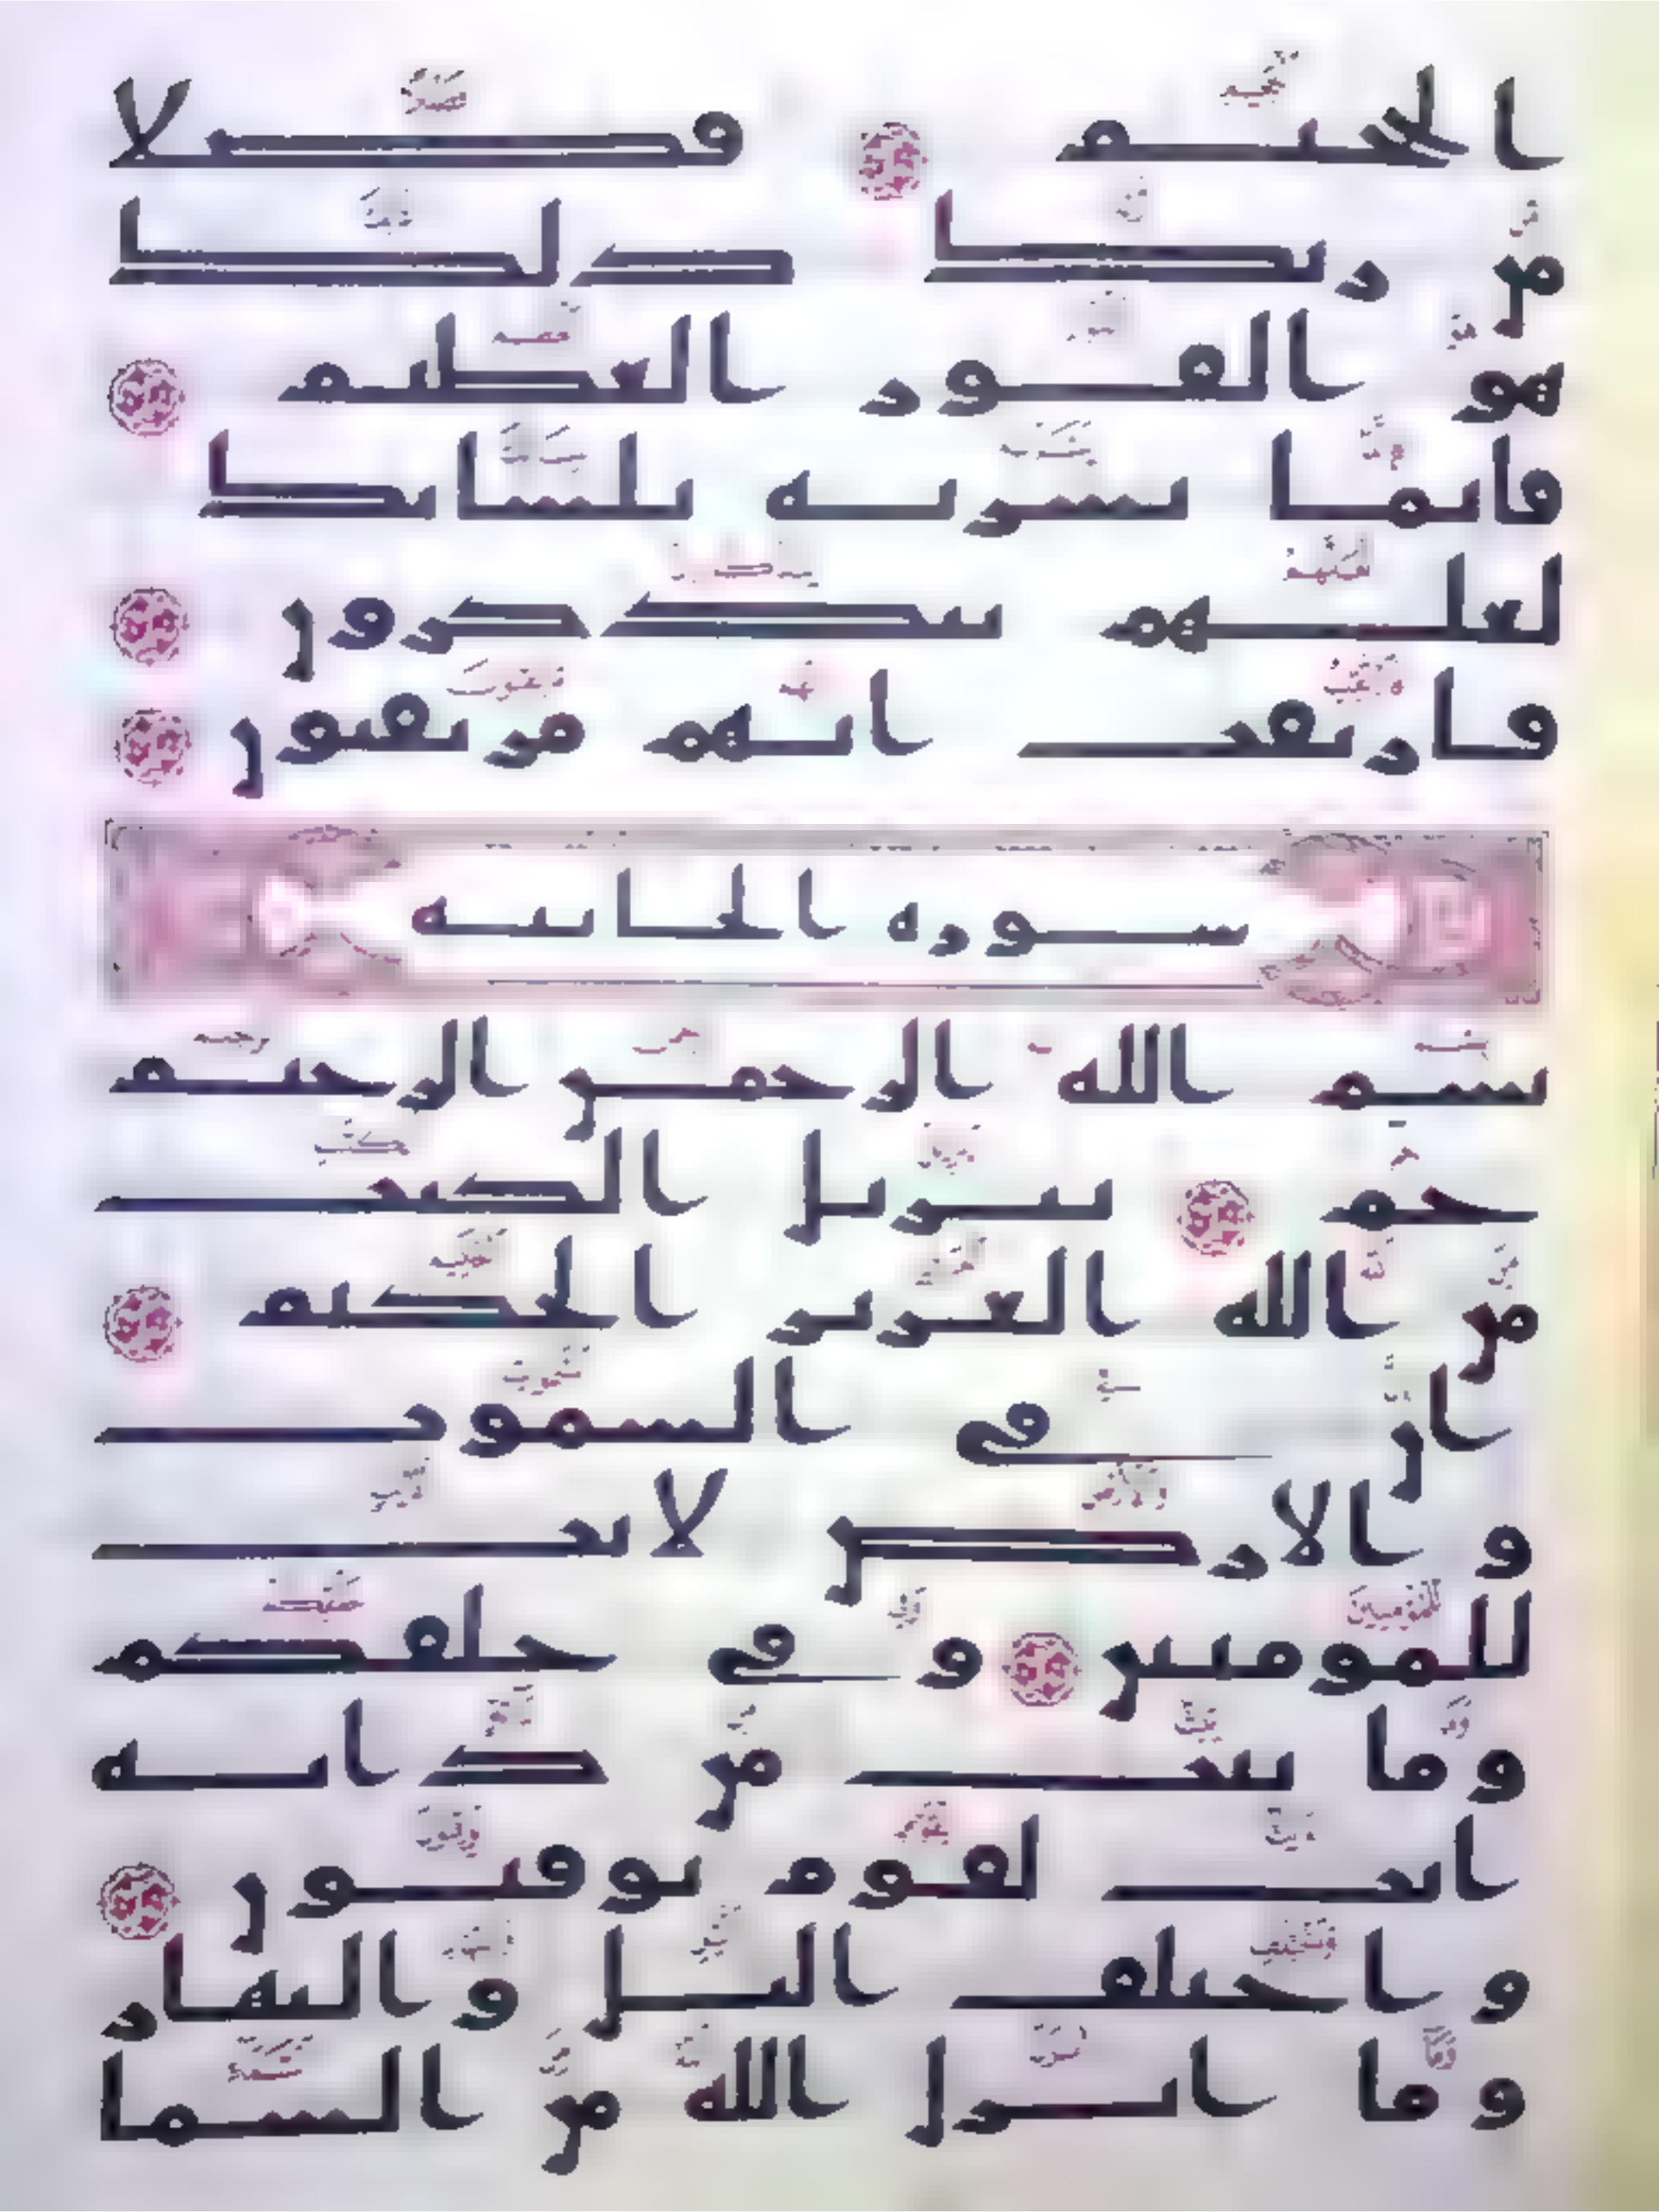 الجحيم فضلا
من ربك ذلك
هو الفوز العظيم
فانما يسرنه بلسانك
لعلهم يتذكرون
فارتقب انهم مرتقبون
سورة الجاثية
بسم الله الرحمن الرحيم
حم تنزيل الكتب
من الله العزيز الحكيم
ان في السموت
و الارض لايت
للمومنين وفي خلقكم
وما يبث من دابة
ايت لقوم يوقنون
و اختلف اليل والنهار
وما انزل الله من السما